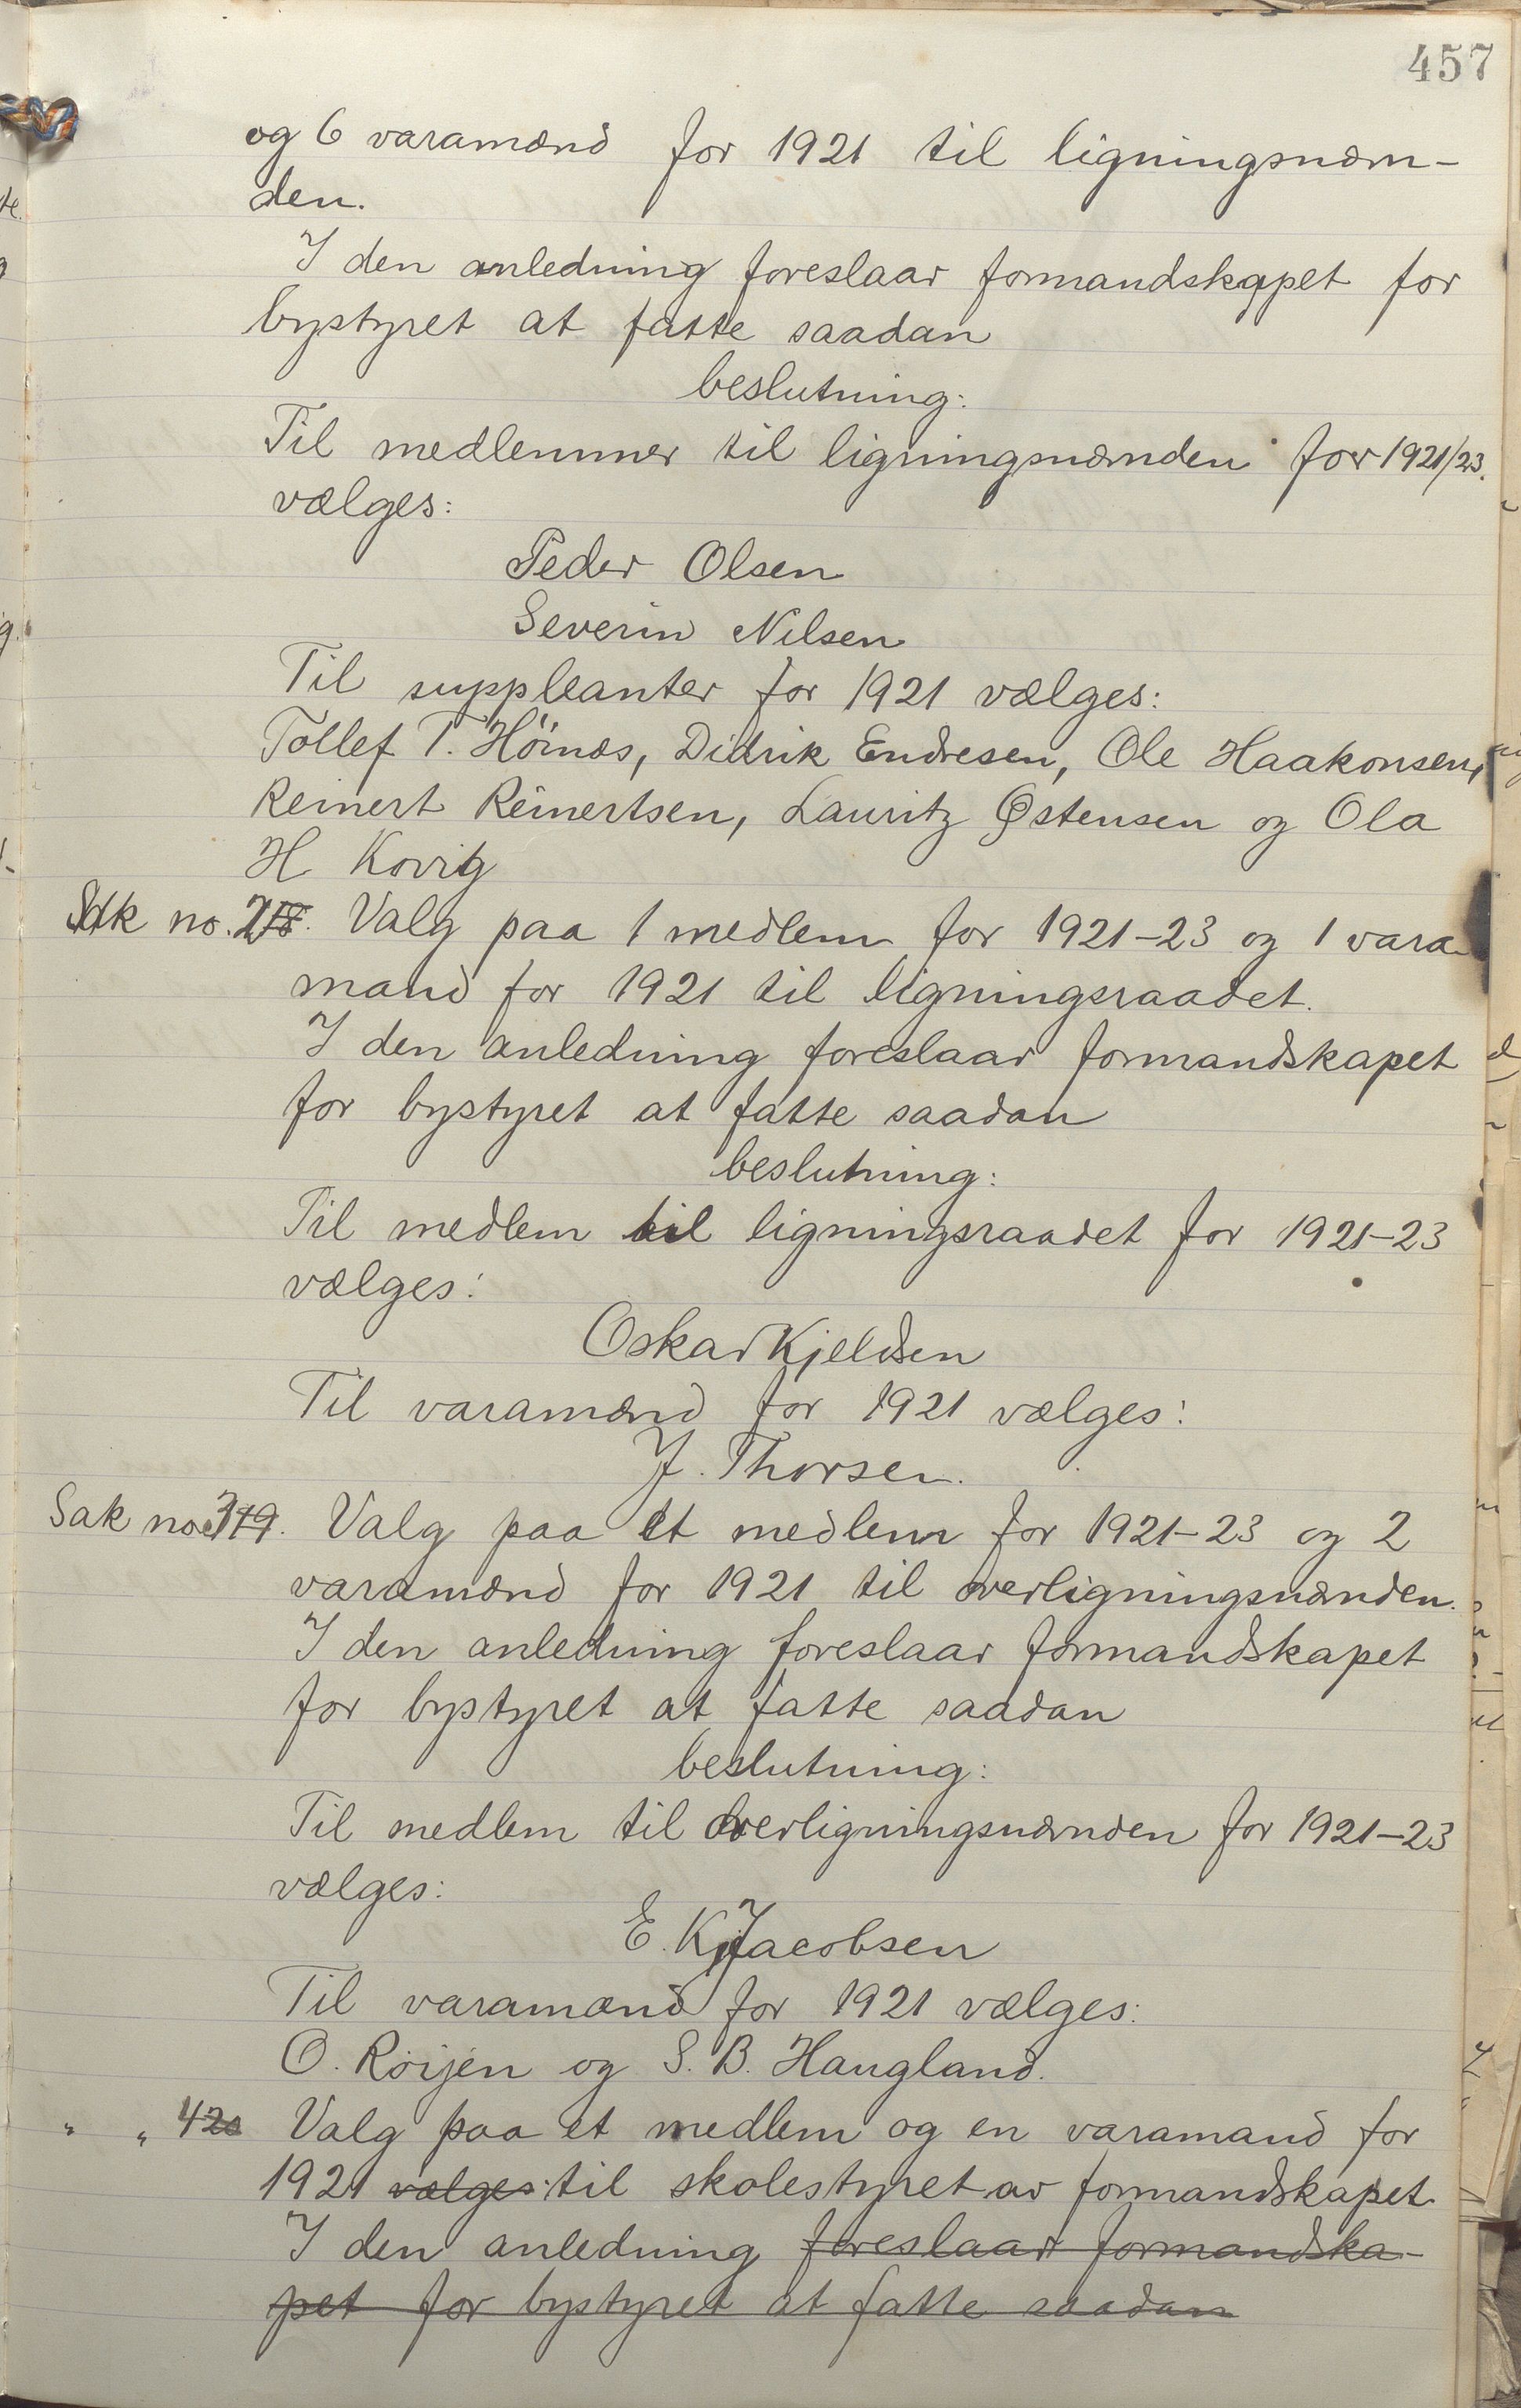 457
og 6 varamænd for 1921 til ligningsnæm-
den.
I den anledning foreslaar formandskapet for
bystyret at fatte saadan
beslutning:
Til medlemmer til ligningsnæmden for 1921/23.
vælges:
Peder Olsen
Severin Nilsen
Til suppleanter for 1921 vælges:
Tollef T. Höinæs, Didrik Endresen, Ole Haakonsen,
Reinert Reinertsen, Lauritz Østensen og Ola
H Kovig
Sak no. 2 Valg paa 1 medlem for 1921-23 og 1 vara-
mand for 1921 til ligningsraadet.
I den anledning foreslaar formandskapet
for bystyret at fatte saadan
beslutning:
Til medlem til ligningsraadet for 1921-23
vælges:
Oskar Kjeldsen
Til varamænd for 1921 vælges:
J. Thorsen.
Sak no. 3 Valg paa et medlem for 1921-23 og 2
varamænd for 1921 til overligningsnænden.
I den anledning foreslaar formandskapet
for bystyret at fatte saadan
beslutning:
Til medlem til overligningsnænden for 1921-23
vælges:
E. K. Jacobsen
Til varamænd for 1921 vælges:
O. Röijen og S. B. Haugland.
" " 4 Valg paa et medlem og en varamand for
1921 vælges: til skolestyret av formandskapet
I den anledning foreslaar formandska-
pet for bystyret at fatte saadan